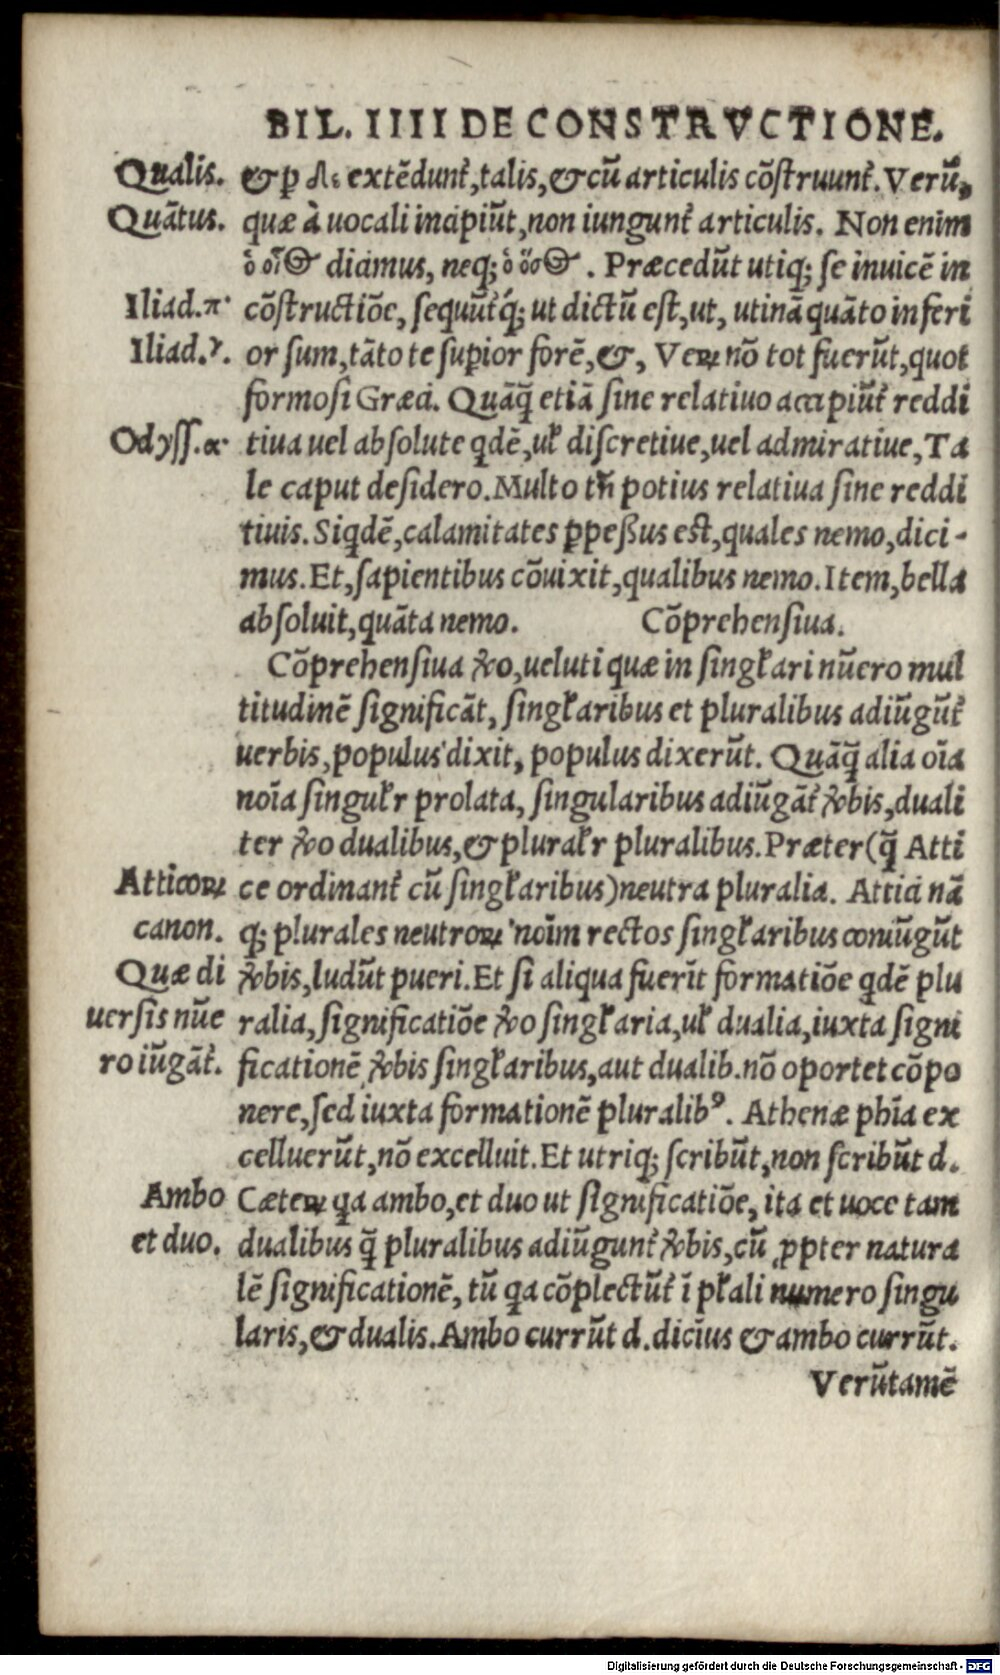 BIL. IIII DE CONSTRVCTIONE.
Qualis. & ꝑ δε extēdunt́, talis, & cū articulis cōstruunt́. Verū,
Quātus. quæ à uocali incipiūt, non iungunt́ articulis. Non enim
dicimus, neq; . Præcedūt utiq; se inuicē in
Iliad.π. cōstructiōe, sequūt́q; ut dictū est, ut, utinā quāto inferi
Iliad.γ. or sum, tāto te suꝑior forē, &, Veꝝ nō tot fuerūt, quot
formosi Græci. Quāq̄ etiā sine relatiuo accipiūt́ reddi
Odyss.α. tiua uel absolute qdē, uƚ discretiue, uel admiratiue, Ta
le caput desidero. Multo tñ potius relatiua sine reddi
tiuis. Siqdē, calamitates ꝑpeßus est, quales nemo, dici-
mus. Et, sapientibus cōuixit, qualibus nemo. Item, bella
absoluit, quāta nemo. Cōprehensiua.
Cōprehensiua ꝟo, ueluti quæ in singƚari nūero mul
titudinē significāt, singƚaribus et pluralibus adiūgūt́
uerbis, populus dixit, populus dixerūt. Quāq̄ alia oīa
noīa singuƚr prolata, singularibus adiūgāt́ ꝟbis, duali
ter ꝟo dualibus, & pluraƚr pluralibus. Præter (q̄ Atti
Atticoꝝ ce ordinant́ cū singƚaribus) neutra pluralia. Attici nā
canon. q; plurales neutroꝝ noīm rectos singƚaribus coniūgūt
Quæ di ꝟbis, ludūt pueri. Et si aliqua fuerīt formatiōe qdē plu
uersis nūe ralia, significatiōe ꝟo singƚaria, uƚ dualia, iuxta signi
ro iūgāt́. ficationē ꝟbis singƚaribus, aut dualib. nō oportet cōpo
nere, sed iuxta formationē pluralibꝰ. Athenæ phīa ex
celluerūt, nō excelluit. Et utriq; scribūt, non scribūt d.
Ambo Cæteꝝ qa ambo, et duo ut significatiōe, ita et uoce tam
et duo. dualibus q̄ pluralibus adiūgunt́ ꝟbis, cū ꝓpter natura
lē significationē, tū qa cōplectūt́ ī pƚali numero singu
laris, & dualis. Ambo currūt d. dicīus & ambo currūt.
Verūtamē
Digitalisierung gefördert durch die Deutsche Forschungsgemeinschaft - DFG